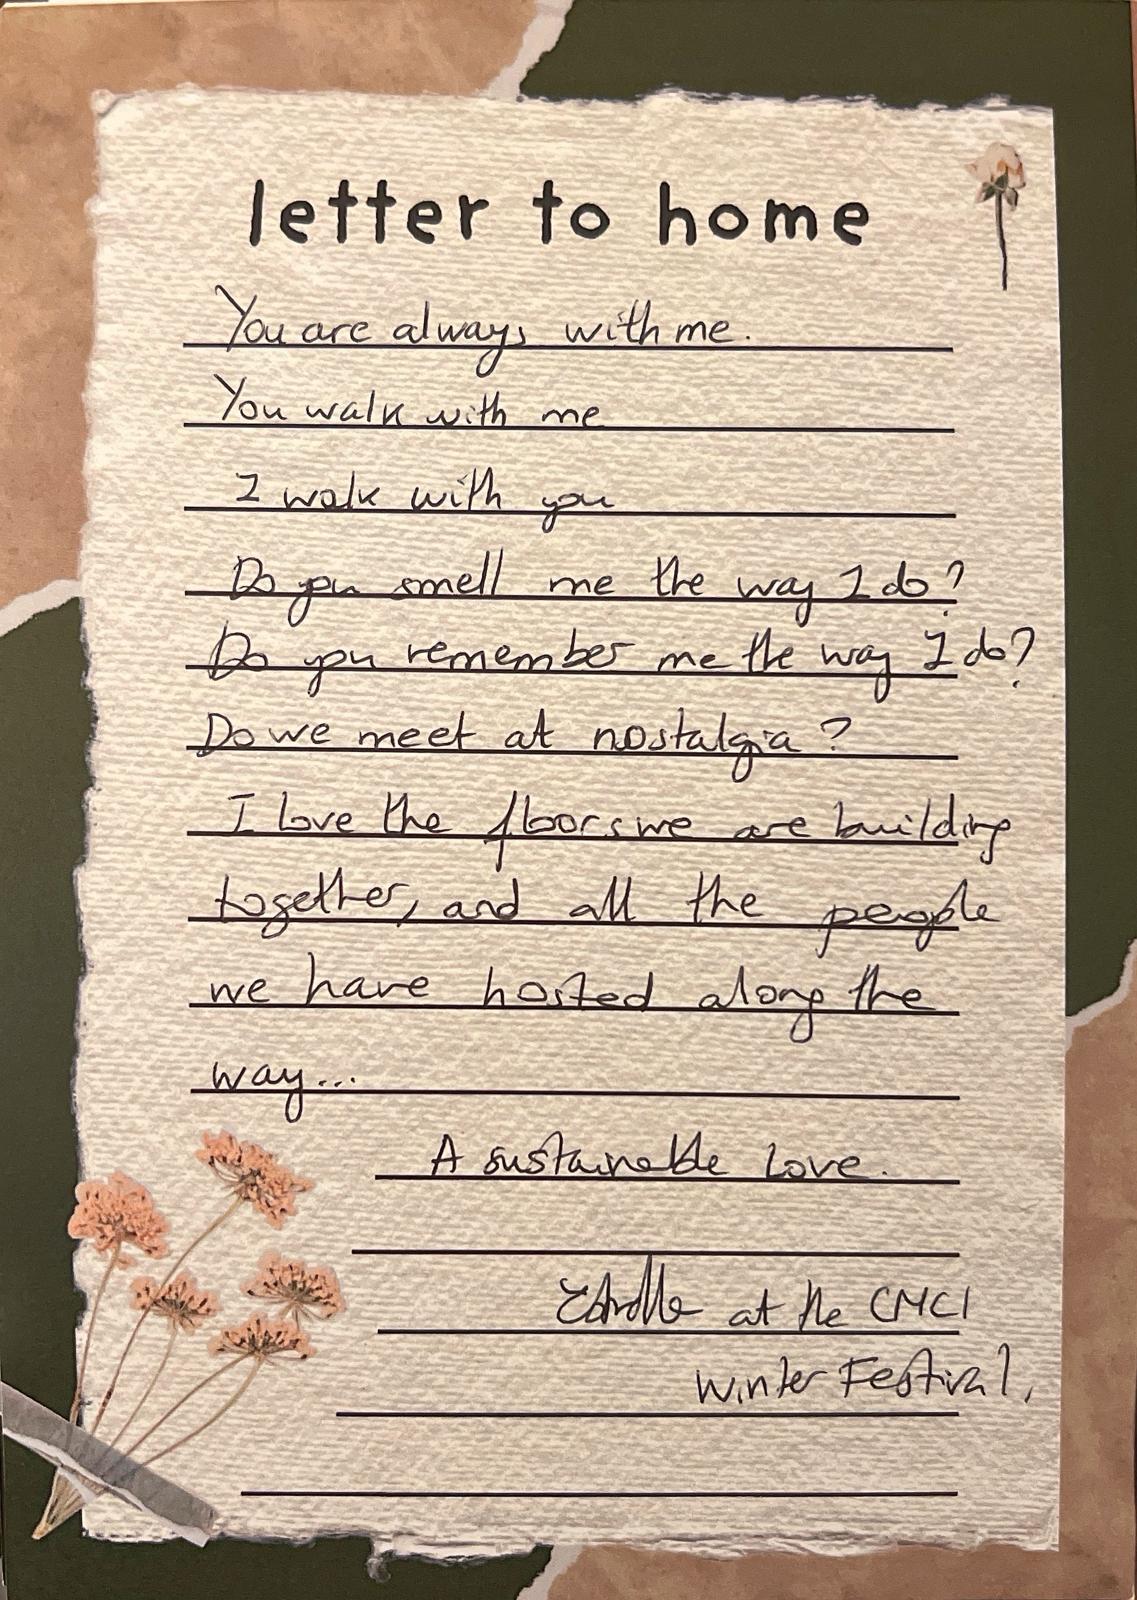 letter to home
You are always with me.
You walk with me
I walk with you
Do you smell me the way I do?
Do you remember me the way I do?
Do we meet at nostalgia?
I love the floors we are building
together, and all the people
we have hosted along the
way...
A sustainable love.
at the CMCI
Winter Festival.